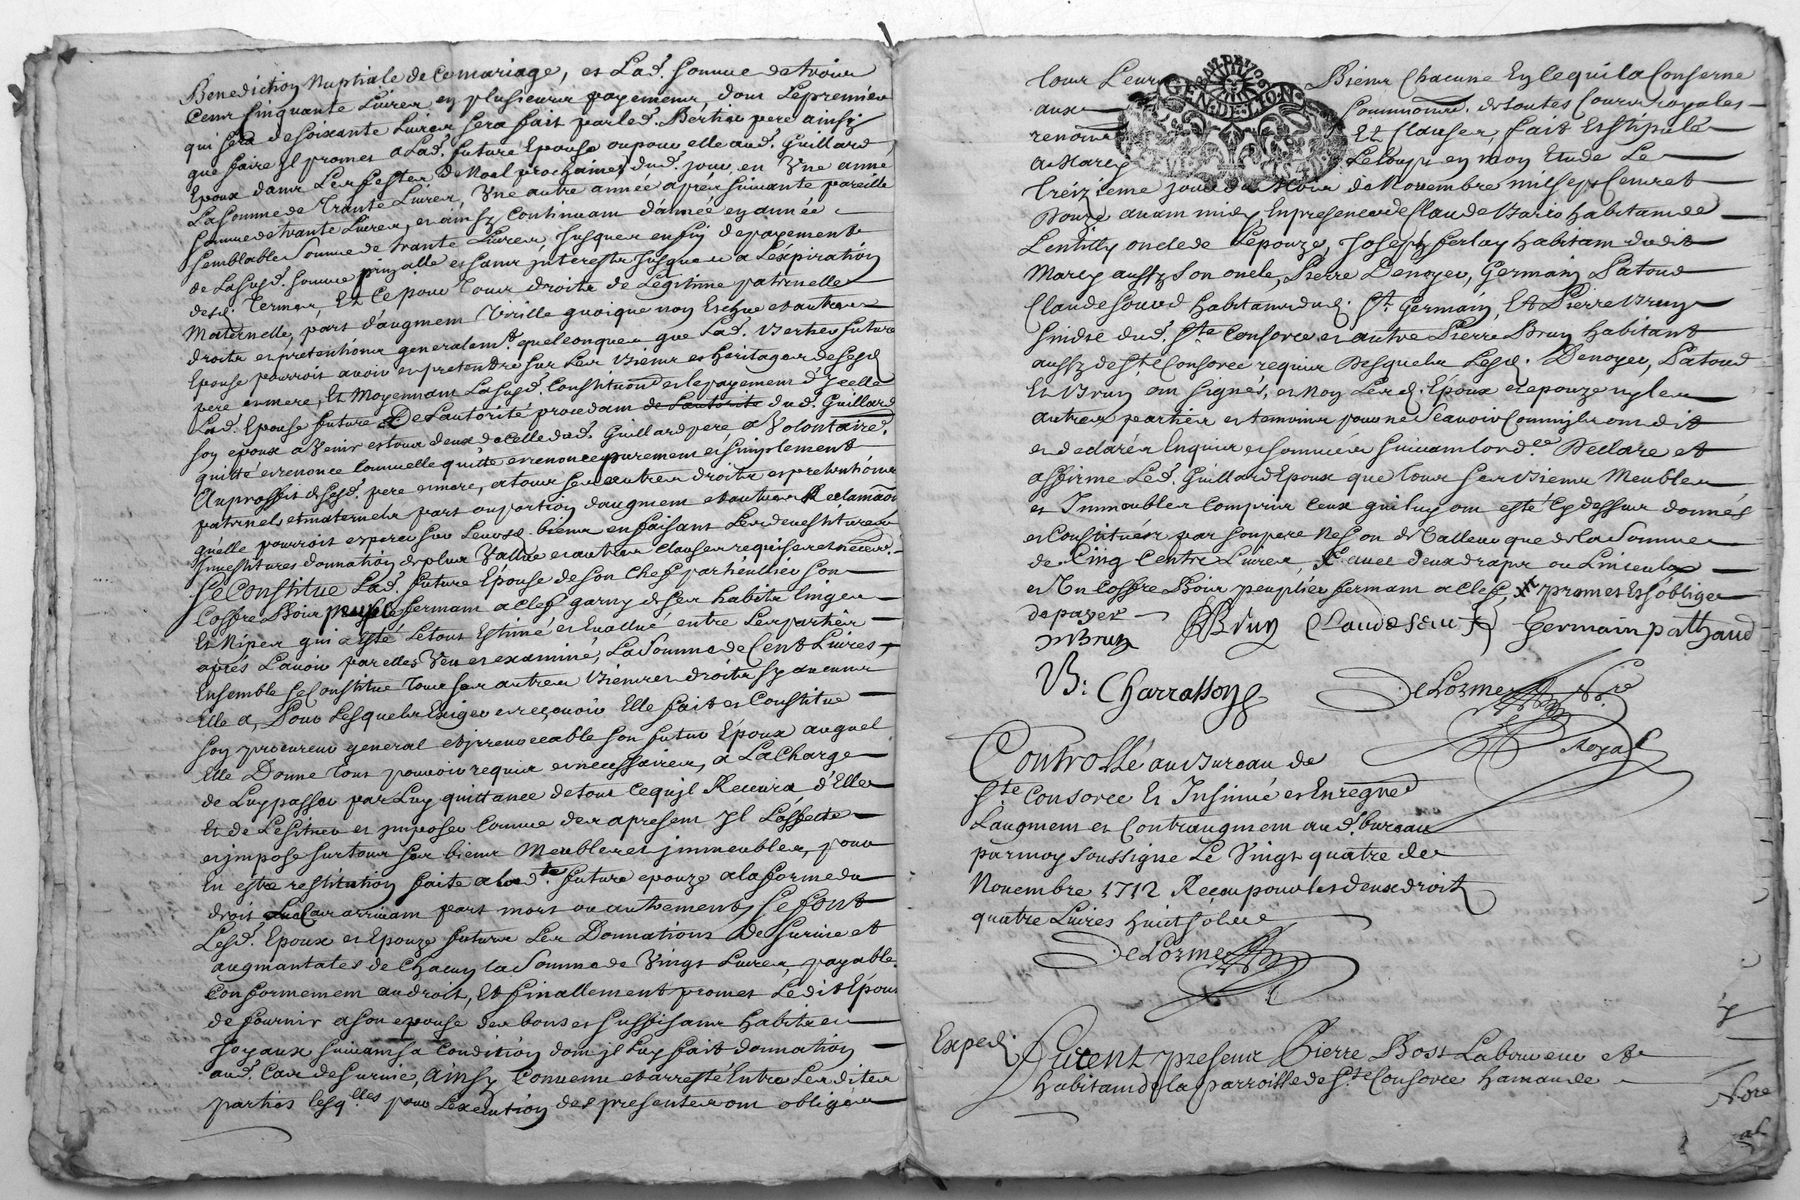 Benediction Nuptiale de Ce mariage, et Lad. Somme de trois
Cent Cinquante Livres en plusieurs payements, dont Le premier
qui sera de soixante Livres sera fait par led. Bertier pere ainsy
que faire Il promet a Lad. future Epouse ou pour elle aud. Guillard
Epoux dans Les festes de Noel prochaines dud. jour en Une anné
La Somme de Trante Livres, Une autre année apres suivante pareille
Somme de trante Livres, et ainsy Continuant d'année en année
semblable Somme de trante Livres Jusques en fin de payement
de Lasusd. somme prinalle et sans Interests Jusques a L'expiration
desd. Termes, Et Ce pour Tous droits de Legitime paternelle
Maternelle, part d'augment Virille quoique non Eschue et autres
droits et pretentions generalemt. quelconques que Lad. Berthier future
Epouse pourroit avoir et pretendre sur Les Biens et heritages de sesd.
pere et mere, Et Moyennant Lasusd. Constitution et le payement d'Icelle
Lad. Epouse future De L'autorité procedant de L'autorité dud. Guillard
son epoux a Venir et tous deux de celle dud. Guillard pere a Volontairt.
quitté et renoncé Comme elle quitte et renonce purement et simplement
Au proffit de sesd. pere et mere, a tous ses autres droits et pretentions
paternels et maternels part ou portion d'augment et autres Reclamaōns
qu'elle pourroit esperer sur Leursd. biens en faisant Les devestitures
Investitures donnation de plus Vallue et autres clauses requises et necess.
Se Constitue Lad. future Epouse de son Chef particullier son
Coffre Bois peuplé fermant a Clef garny de ses habits linges
Et Nipes qui a esté Le tout Estimé et Evallué entre Les parties
aprés L'avoir par elles Veu et examiné, La Somme de Cent Livres,
Ensemble se Constitue Tous ses autres Biens et droits sy aucuns
Elle a, Pour Lesquels Exiger et reçevoir Elle fait et Constitue
son procureur general et irrevoccable son futur Epoux auquel
Elle Donne Tout pouvoir requis et necessaires, a La Charge
de Luy passer par Luy quittance de tout Ce qu'il Recevra d'Elle
Et de L'esitner et imposer Comme des a present Il L'affecte
et impose sur tous ses biens Meubles et immeubles, pour
En estre restitution faite a lad.te future epouze a la forme du
droit Le Cas arrivant part mort ou autrement, se font
Lesd. Epoux et Epouze futurs Les Donnations de survie et
augmantates de Chacun la Somme de Vingt Livres, payable
Conformement au droit, Et finallement promet Ledit Epoux
de fournir a son epouse des bons et suffisants habits et
Joyaux suivant sa Condition dont il Luy fait donnation
aud. Cas de survie, Ainsy Convenu et arresté Entre Lesdites
parties lesq.lles pour L'execution des presentes ont obligéz
tous Leurs Biens Chacune En Ce qui la Conserne
aux Soumissions, de toutes Cours royalles
renoncé Et Clauses, fait Et stipulé
a Marcy Le loup en mon Etude Le
treizieme jour du Mois de Novembre mil sept Cent et
Douze avant midy En presence de Claude Barro habitant de
Lentilly oncle de L'epouze, Joseph ferlay habitant dudit
Marcy aussy son oncle, Pierre Denoyer, Germain Patoud
Claude Soud habitants dud. St. Germain, Et Pierre Brun
sindic dud. Ste Consorce et autre Pierre Brun habitant
aussy de Ste Consorce requis Desquels Lesd. Denoyer, Patoud
Et Brun ont signés, et Non Lesd. Epoux et epouze ny les
autres parties et temoins pour ne sçavoir Comme ils ont dit
et declaré Enquis et sommés suivant lord.ce Declare et
affirme Led. Guillard Epoux que tous ses Biens Meubles
et Immeubles Compris Ceux qui luy ont esté Cy dessus donnés
et Constitués par son pere ne sont de Valleur que de la Somme
de Cinq Cents Livres, X avec deux draps ou Linceulx
et Un Coffre Bois peuplier fermant a Clef, X promet Et s'oblige
de payer
P Brun PBRun Claude seuve Germain pathaud
B: Charrasson DeLorme Nre
Royal
Controllé au Bureau de
Ste Consorce Et Insinué et Enregred
L'augment et Contraugment aud. bureau
par moy soussigné Le Vingt quatre de
Novembre 1712 Receu pour les deux droits
quatre Livres huit sols
DeLorme
Exped. Furent presents Pierre Bost Laboureur et
habitant de la parroisse de Ste Consorce hamau de
GEN.DE.LION